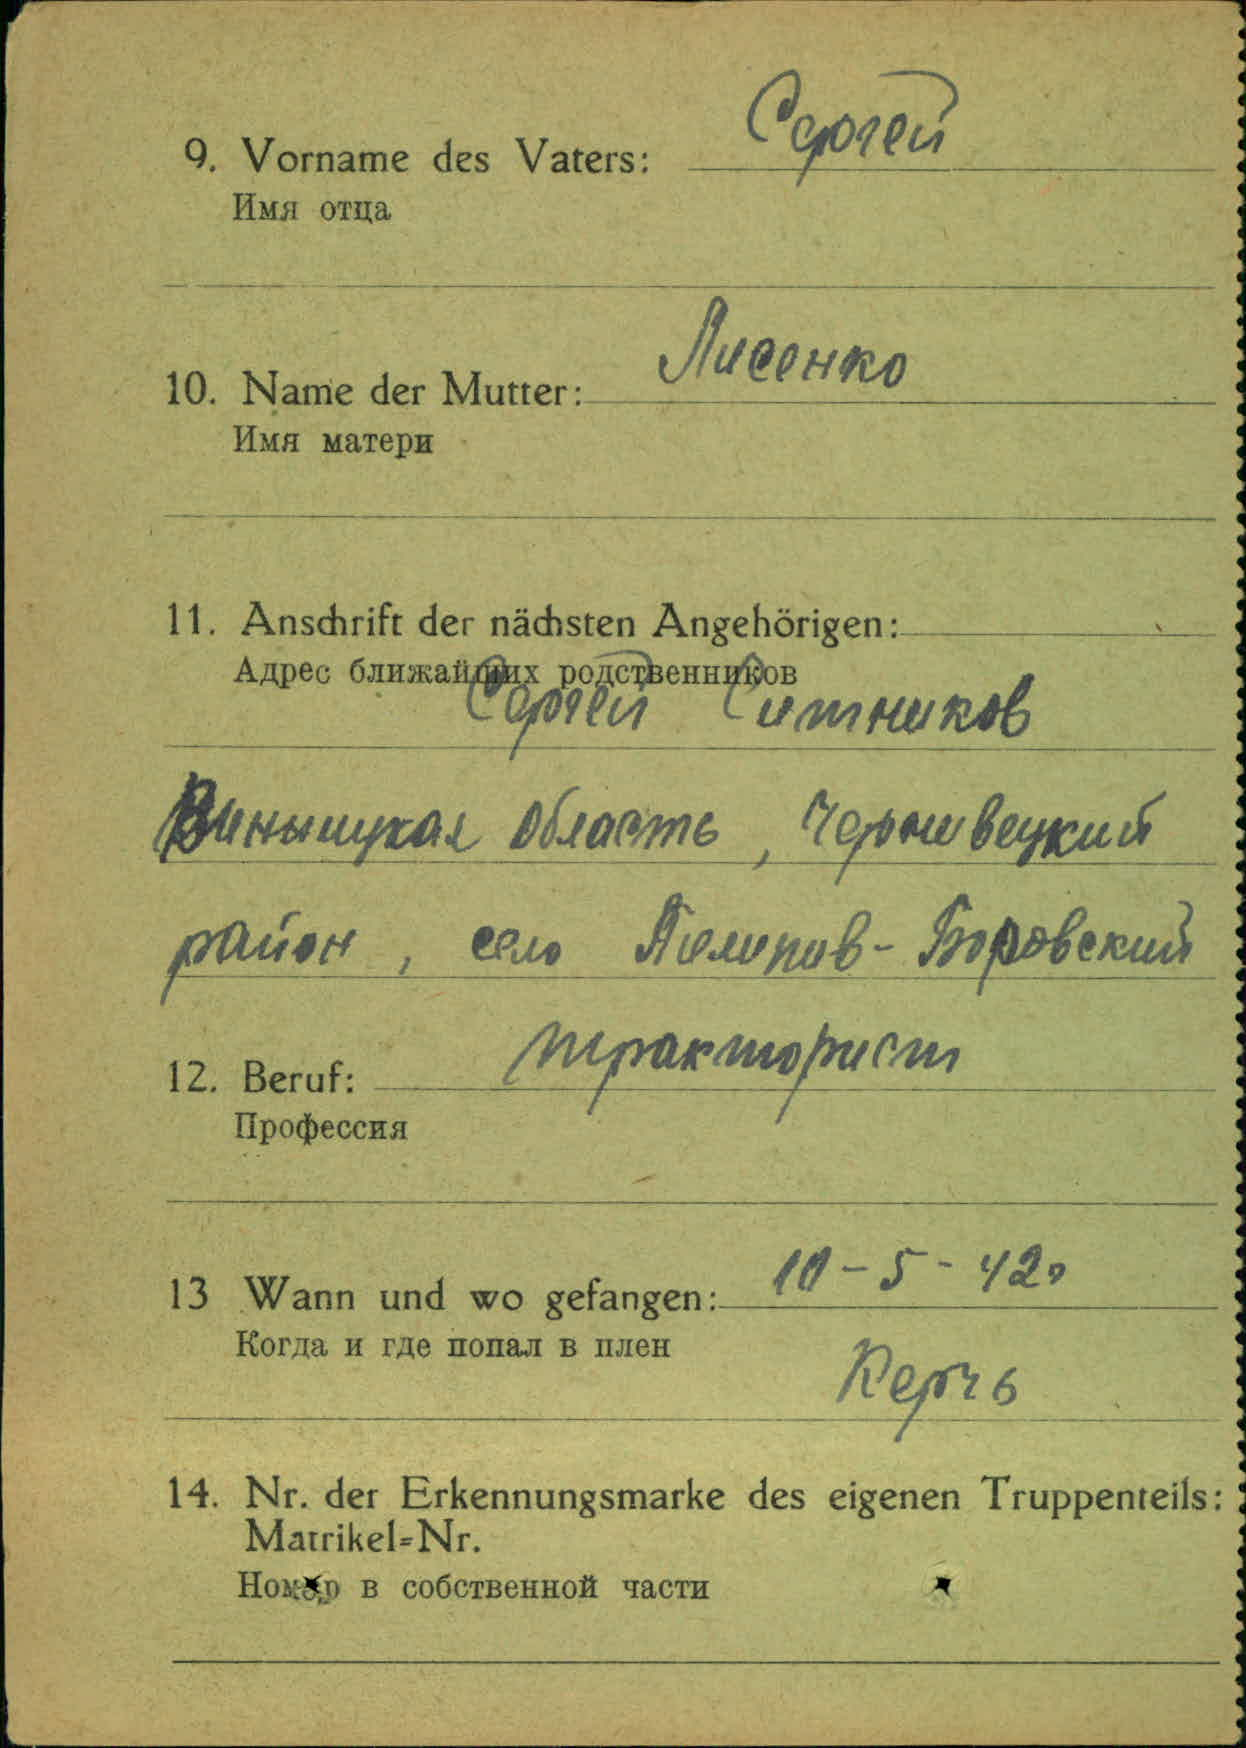 9. Vorname des Vaters: Сергей
Имя отца
10. Name der Mutter: Лисенко
Имя матери
11. Anschrift der nächsten Angehörigen:
Адрес ближайших родственников
Сергей Ситников
Виныцукая область, Черневецкий
район, село Пилипов-Боровский
12. Beruf: тракторист
Профессия
13 Wann und wo gefangen: 10-5-42г
Когда и где попал в плен
Керчь
14. Nr. der Erkennungsmarke des eigenen Truppenteils:
Matrikel=Nr.
Номер в собственной части